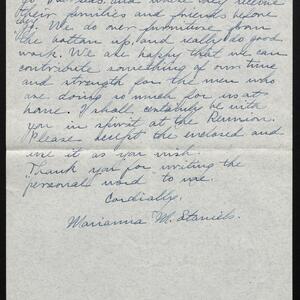 go overseas, and where they receive
their families and friends before
that. We do over furniture from
the bottom up, and really do good
work. We are happy that we can
contribute something of our time
and strength for the men who
are doing so much for us at
home. I shall certainly be with
you in spirit at the Reunion.
Please accept the enclosed and
use it as you wish.
Thank you for writing the
personal word to me.
Cordially,
Marianna M. Staniels.